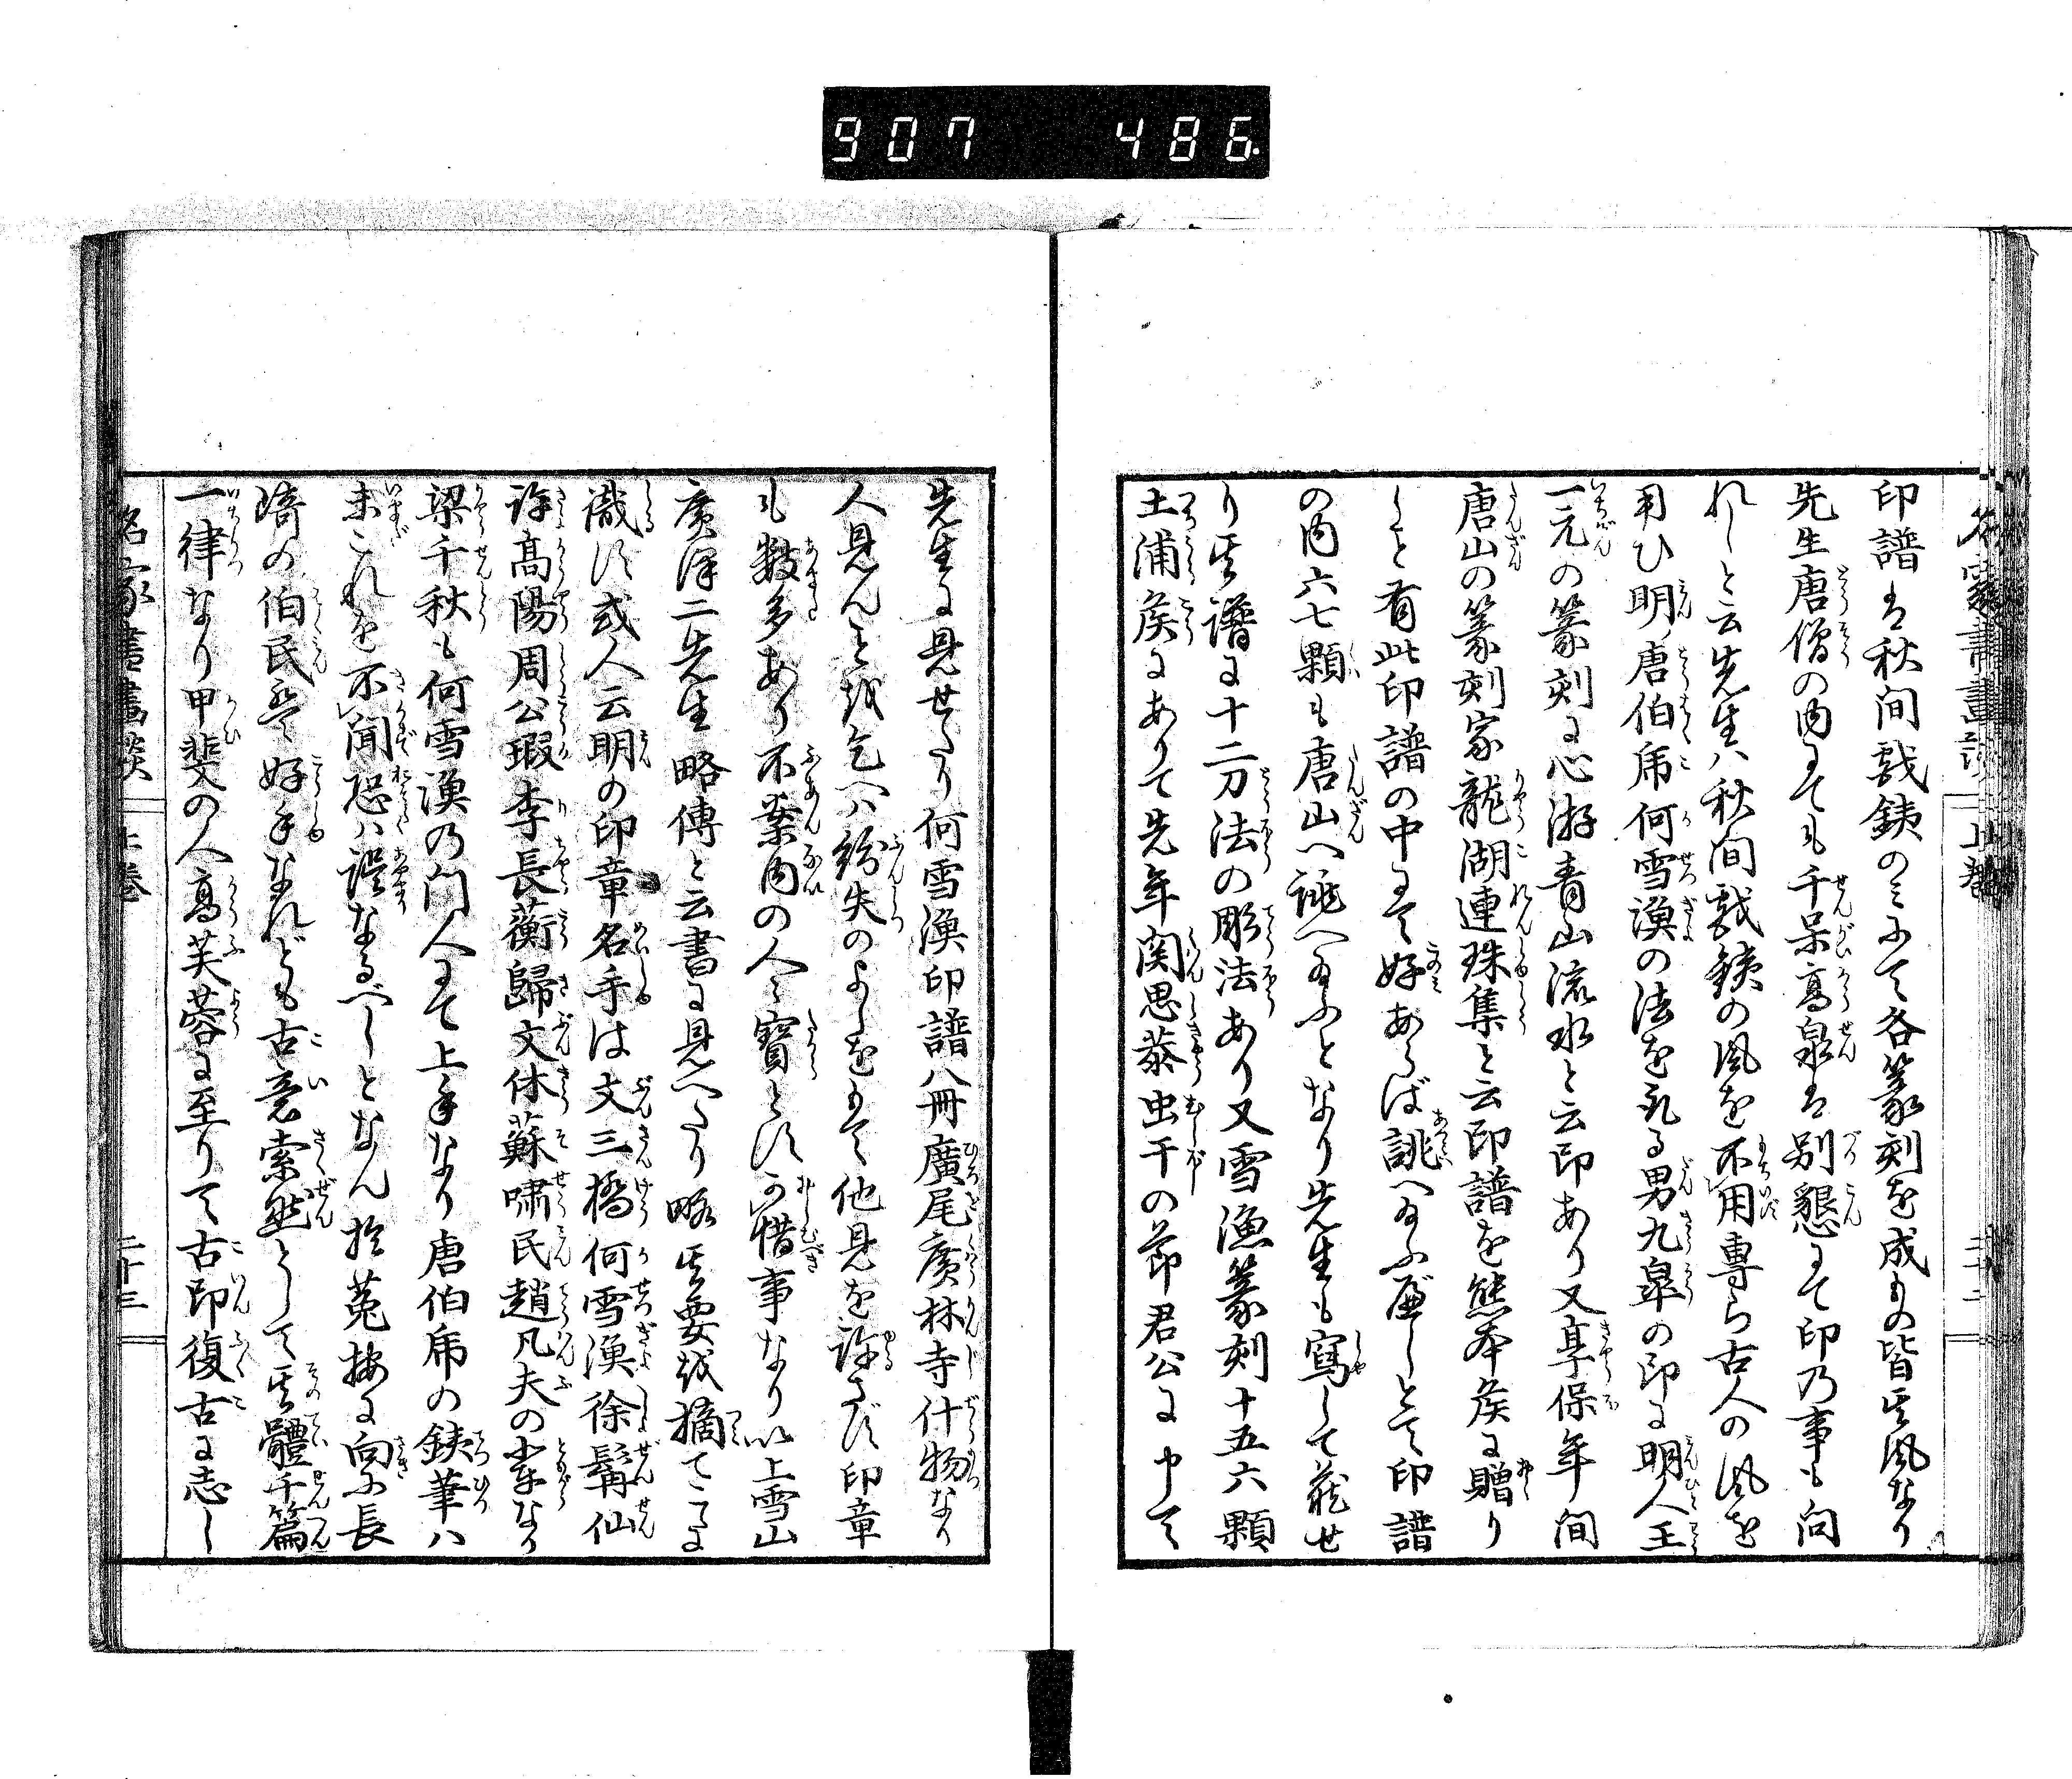 907 486
名家書畫談 上巻 二十二
印譜は秋間戲銕のミふて各篆刻を成もの皆其風なり
先生唐僧の内にても千呆高泉は別懇にて印の事も向
れしと云先生ハ秋間戲銕の風を不用専ら古人の風を
用ひ明唐伯虎何雪漁の法を乱る男九皐の印に明人王
一元の篆刻に心游青山流水と云印あり又享保年間
唐山の篆刻家龍湖連珠集と云印譜を熊本矦に贈り
しと有此印譜の中にて好あらば誂へ給ふ可しとて印譜
の内六七顆も唐山へ誂へ給ふとなり先生も寫して蔵せ
り其譜に十二刀法の彫法あり又雪漁篆刻十五六顆
土浦矦にありて先年関思恭虫干の節君公に申て
先生に見せたり何雪漁印譜八冊廣尾廣林寺什物なり
人見んを乞へハ紛失のよしをもて他見を許さず印章
も数多あり不案内の人々寶とす可惜事なり以上雪山
廣澤二先生略傳と云書に見へたり略其要を摘てこゝに
識す或人云明の印章名手は文三橋何雪漁徐髯仙
許高陽周公瑕李長蘅歸文休蘇嘯民趙凡夫の輩なり
梁千秋も何雪漁の門人にて上手なり唐伯虎の銕筆ハ
未これを不聞恐ハ誤なるべしとなん於菟按に向ふ長
琦の伯民て好手なれども古意索然として其體千篇
一律なり甲斐の人高芙蓉に至りて古印復古に志し
名家書畫談 上巻 二十三